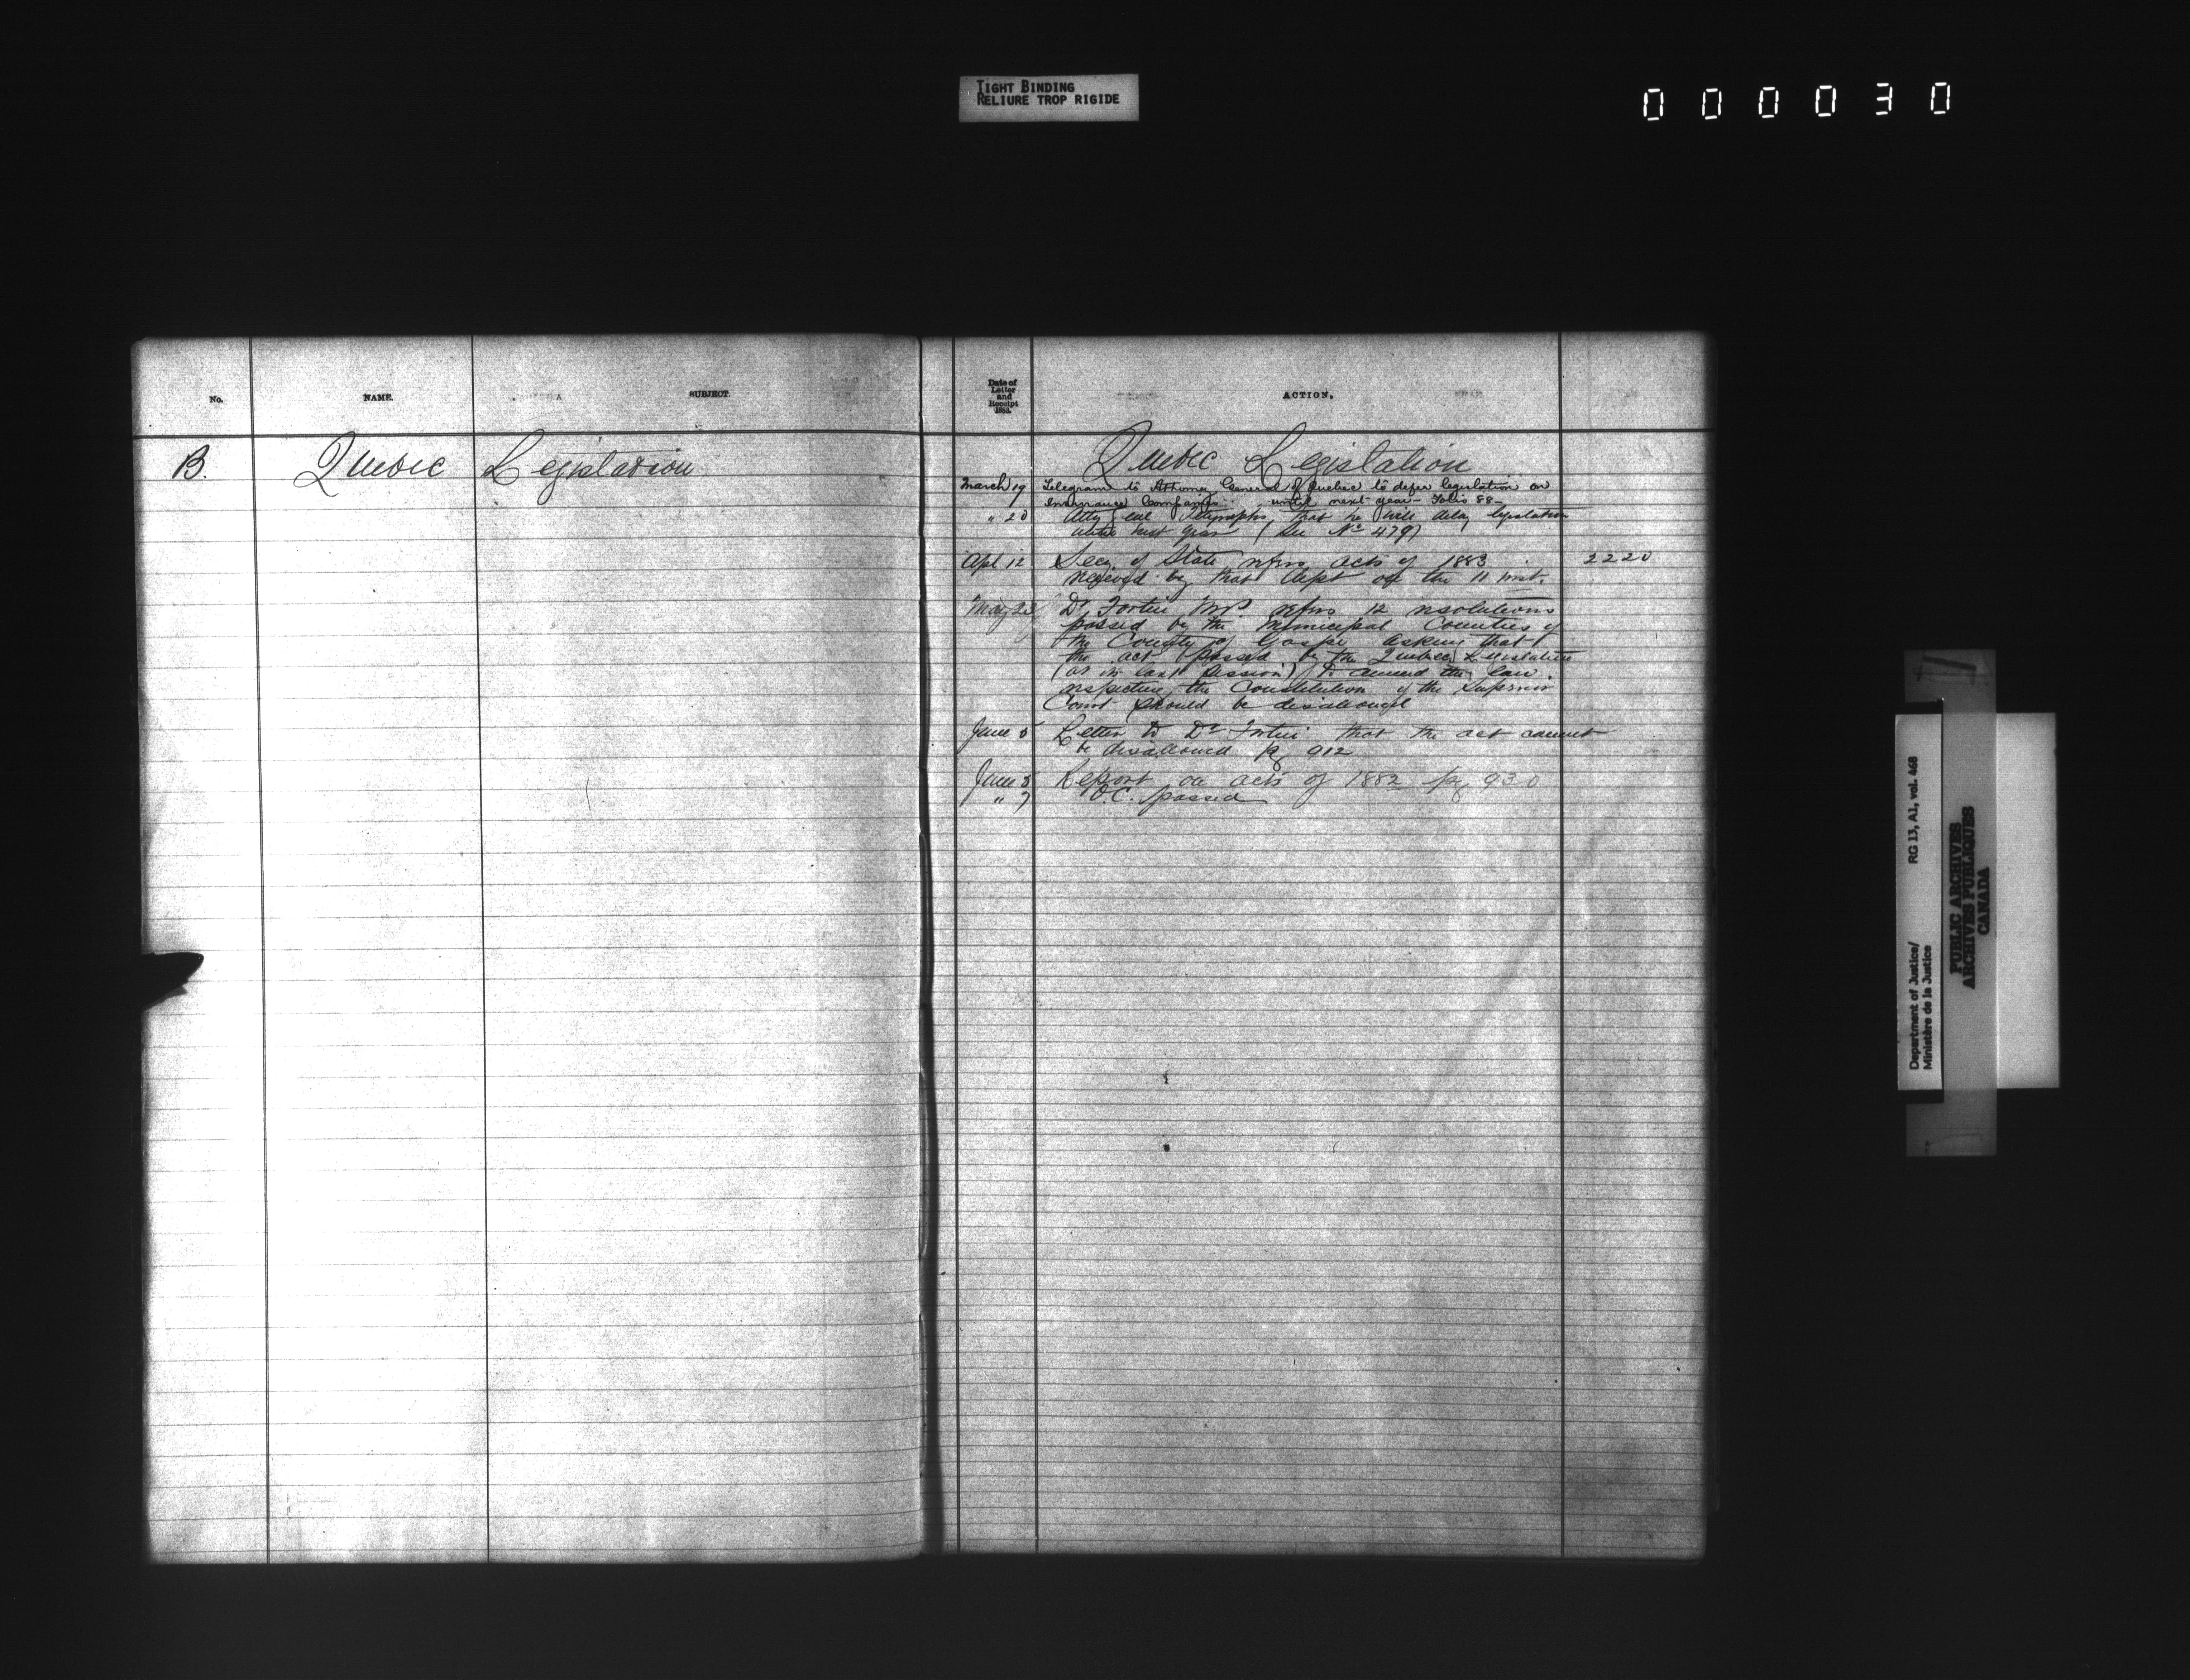 TIGHT BINDING
RELIURE TROP RIGIDE
000030
No.
NAME.
SUBJECT.
B.
Quebec
Legislation
Date of
Letter
and
Receipt
1883.
ACTION.
Quebec Legislation
March 19 Telegram to Attorney General of Quebec to defer legislation on
Insurance Companies until next year - Folio 88-
" 20 Atty Genl Telegraphs that he will delay legislation
until next year (See No 479)
Apl 12 Secy of State refers acts of 1883 2220
received by that dept on the 11 inst.
May 23 Dr Fortin MP refers 12 resolutions
passed by the Municipal Counties of
the County of Gaspe asking that
the act passed by the Quebec Legislature
(at its last Session) to amend the law
respecting the Constitution of the Superior
Court should be disallowed
June 5 Letter to Dr Fortin that the act cannot
be disallowed pg 912
June 5 Report on acts of 1882 pg 930
" 7 O.C. passed
RG 13, A1, vol. 468
Department of Justice/
Ministère de la Justice
PUBLIC ARCHIVES
ARCHIVES PUBLIQUES
CANADA